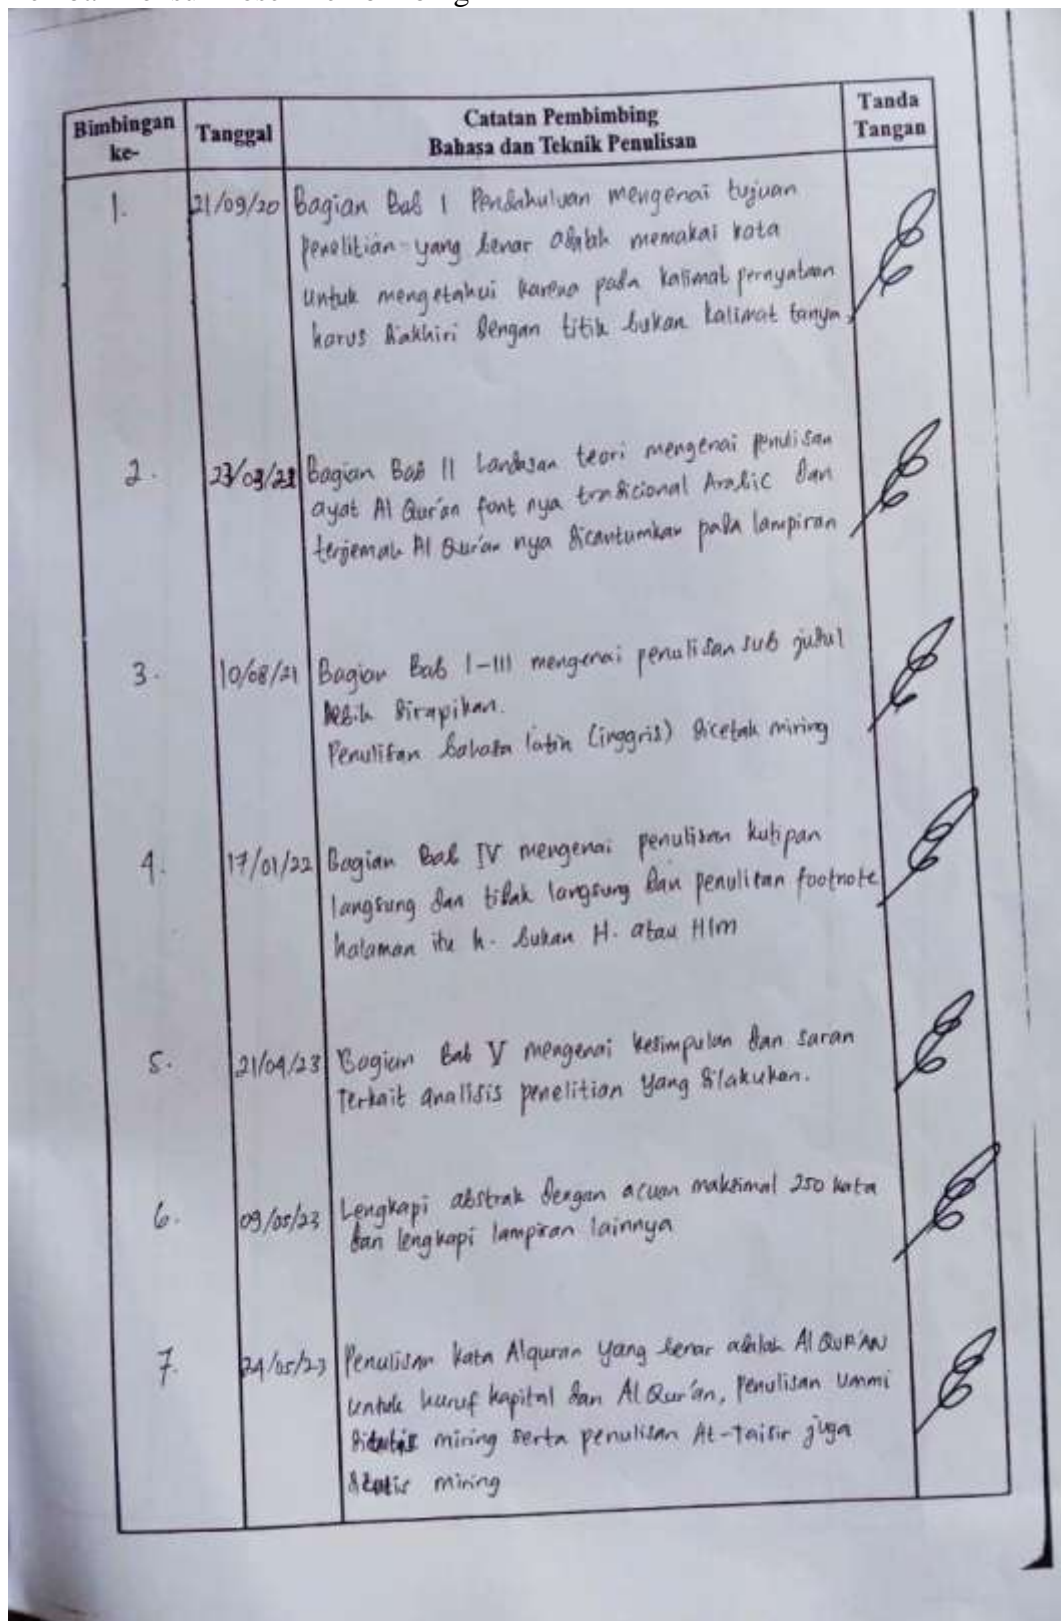 Bimbingan ke-
Tanggal
Catatan Pembimbing
Bahasa dan Teknik Penulisan
Tanda Tangan
1. 21/09/20 Bagian Bab I Pendahuluan mengenai tujuan
penelitian yang benar adalah memakai kata
untuk mengetahui karena pada kalimat pernyataan
harus diakhiri dengan titik bukan kalimat tanya
2. Bagian Bab II Landasan teori mengenai penulisan
ayat Al Qur'an font nya tradicional Arabic dan
terjemah Al Qur'an nya dicantumkan pada lampiran
3. 10/08/21 Bagian Bab I-III mengenai penulisan sub judul
lebih dirapikan.
Penulisan bahasa latin (inggris) dicetak miring
4. 17/01/22 Bagian Bab IV mengenai penulisan kutipan
langsung dan tidak langsung dan penulisan footnote
halaman itu h. bukan H. atau Hlm
5. 21/04/23 Bagian Bab V mengenai kesimpulan dan saran
Terkait analisis penelitian yang dilakukan.
6. 09/05/23 Lengkapi abstrak dengan acuan maksimal 250 kata
dan lengkapi lampiran lainnya
7. 24/05/23 Penulisan kata Alquran yang benar adalah Al QUR'AN
untuk huruf kapital dan Al Qur'an, penulisan Ummi
miring serta penulisan At-Taisir juga
miring